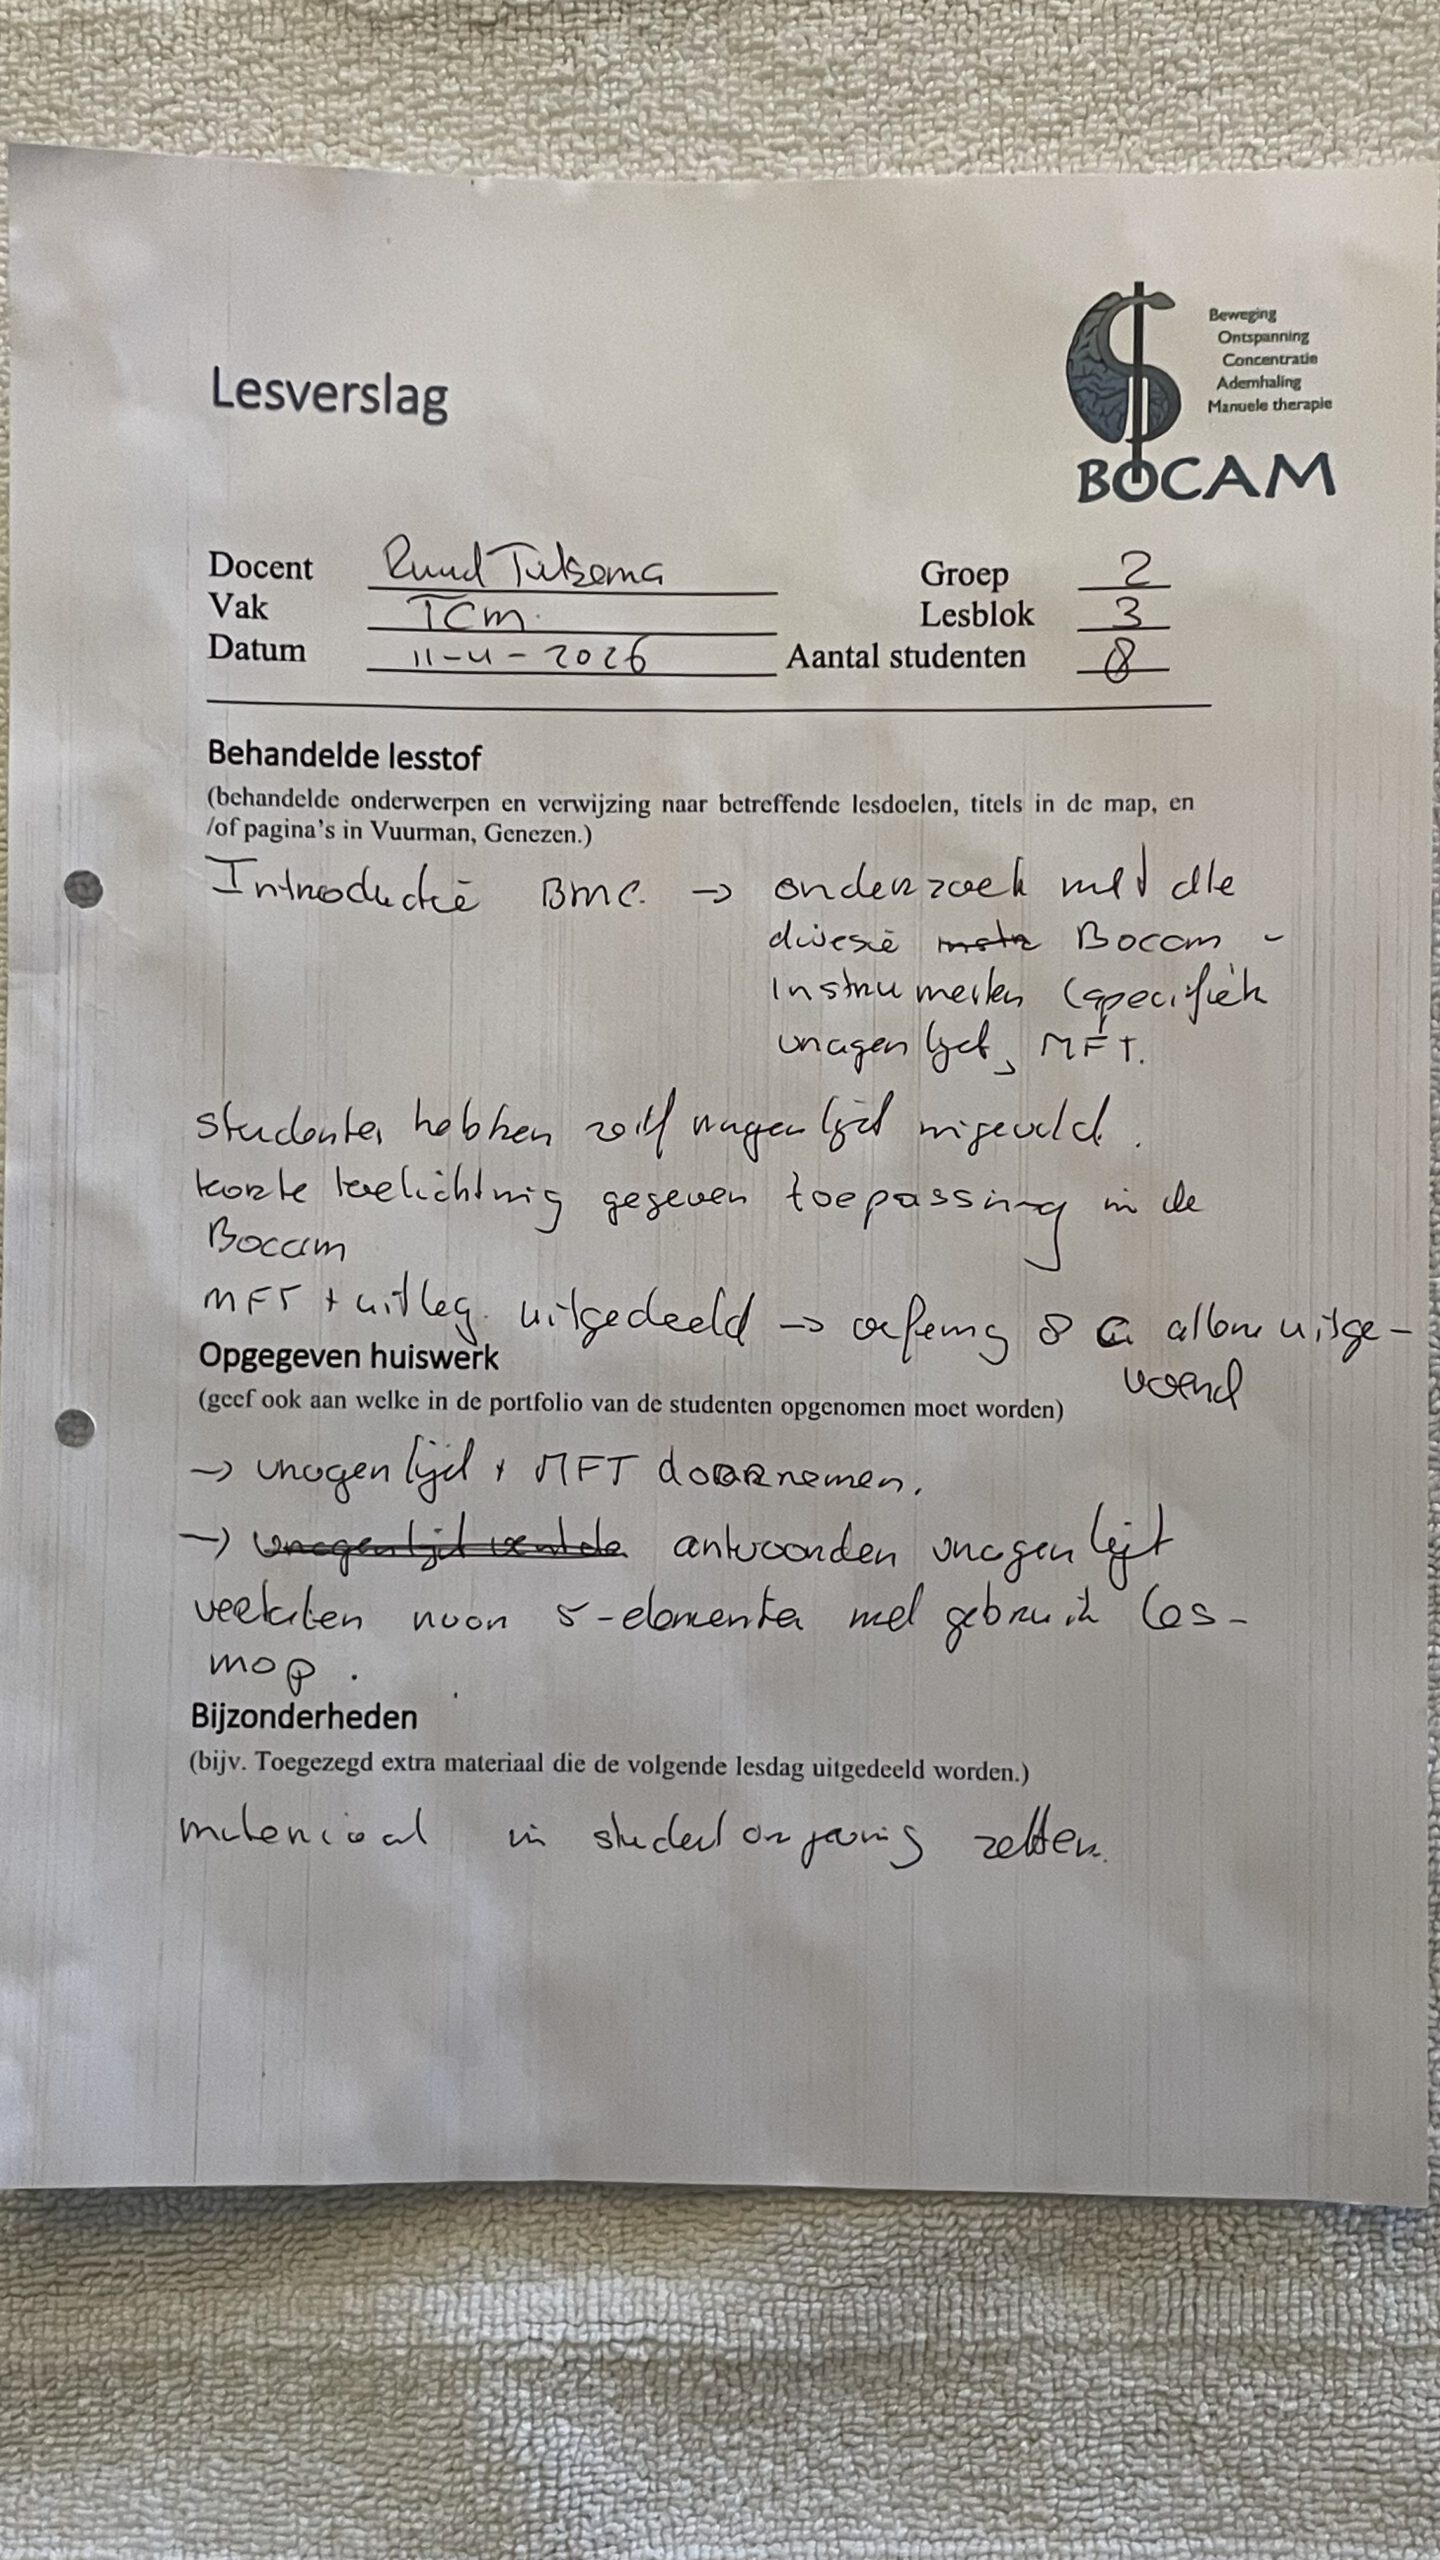 Beweging
Ontspanning
Concentratie
Ademhaling
Manuele therapie
BOCAM
Lesverslag
Docent Ruud
Groep 2
Vak TCM.
Lesblok 3
Datum 11-4-2026
Aantal studenten 8
Behandelde lesstof
(behandelde onderwerpen en verwijzing naar betreffende lesdoelen, titels in de map, en
/of pagina's in Vuurman, Genezen.)
Introductie BMC. → onderzoek met die
Bocam -
instrumenten (specifiek
vragenlijst, MFT.
studenten hebben zelf vragenlijst ingevuld.
korte toelichting gegeven toepassing in de
Bocam
MFT + uitleg. uitgedeeld → oefening 8 allen uitge-
voerd
Opgegeven huiswerk
(geef ook aan welke in de portfolio van de studenten opgenomen moet worden)
→ vragenlijst + MFT doornemen.
→ antwoorden vragenlijst
vertalen naar 5-elementen met gebruik les-
map.
Bijzonderheden
(bijv. Toegezegd extra materiaal die de volgende lesdag uitgedeeld worden.)
materiaal in studentomgeving zetten.